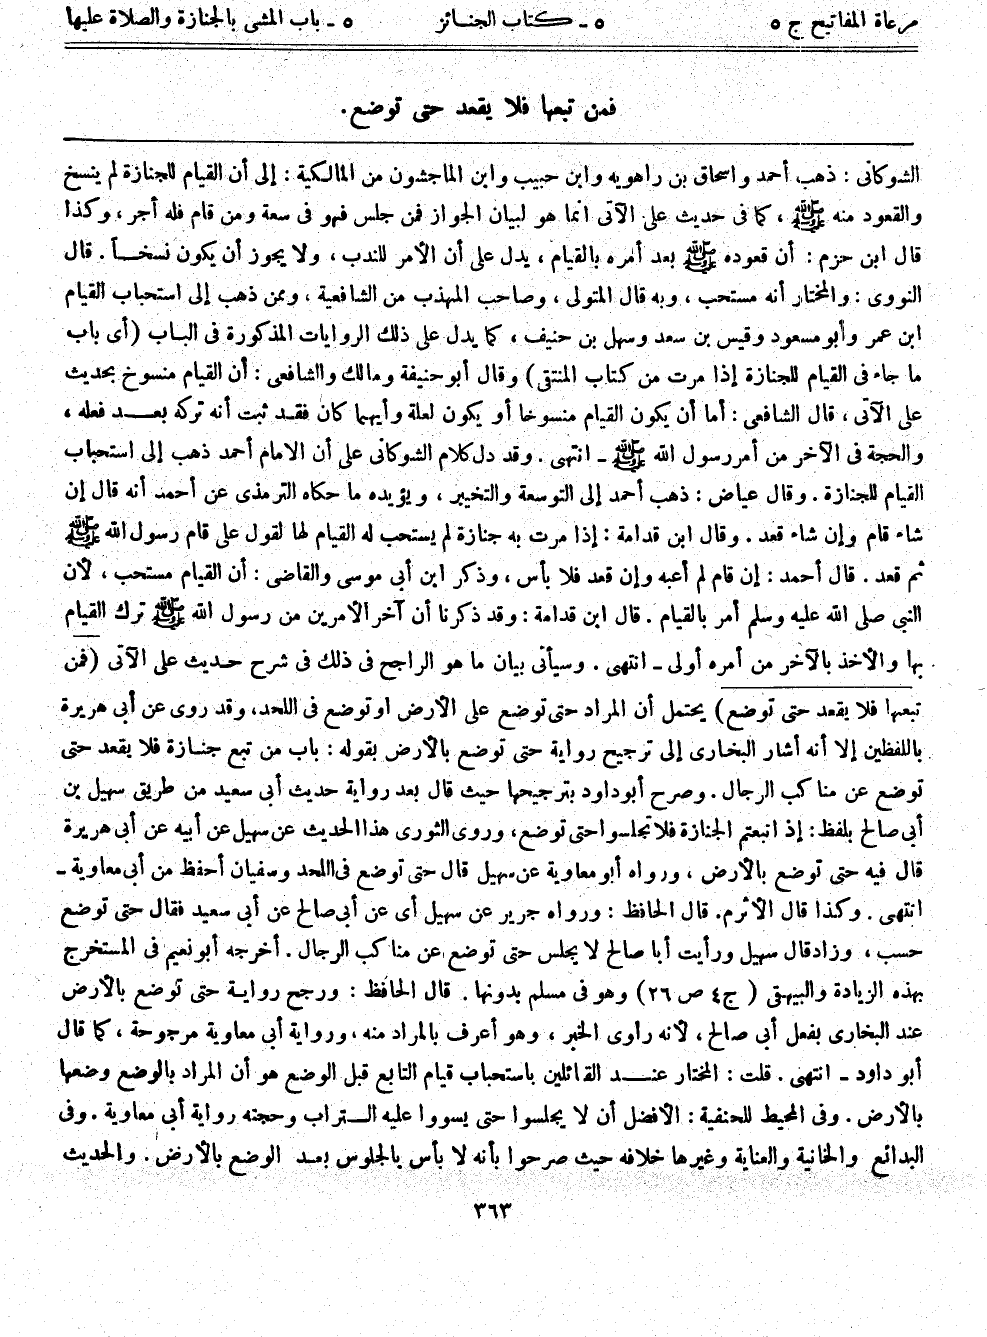 مرعاة المفاتيح ج ٥ ٥ ـ كتاب الجنائز ٥ ـ باب المشى بالجنازة والصلاة عليها
فمن تبعها فلا يقعد حتى توضع.
الشوكانى : ذهب أحمد واسحاق بن راهويه وابن حبيب وابن الماجشون من المالكية : إلى أن القيام للجنازة لم ينسخ
والقعود منه ﷺ ، كما فى حديث على الآتى انما هو لبيان الجواز فمن جلس فهو فى سعة ومن قام فله أجر ، وكذا
قال ابن حزم : أن قعوده ﷺ بعد أمره بالقيام ، يدل على أن الأمر للندب ، ولا يجوز أن يكون نسخـاً . قال
النووى : والمختار أنه مستحب ، وبه قال المتولى ، وصاحب المهذب من الشافعية ، وممن ذهب إلى استحباب القيام
ابن عمر وأبو مسعود وقيس بن سعد وسهل بن حنيف ، كما يدل على ذلك الروايات المذكورة فى البـاب (أى باب
ما جاء فى القيام للجنازة إذا مرت من كتاب المنتقى) وقال أبو حنيفة ومالك والشافعى : أن القيام منسوخ بحديث
على الآتى ، قال الشافعى : أما أن يكون القيام منسوخا أو يكون لعلة وأيهما كان فقـد ثبت أنه تركه بعـــد فعله ،
والحجة فى الآخر من أمر رسول الله ﷺ ـ انتهى . وقد دل كلام الشوكانى على أن الامام أحمد ذهب إلى استحباب
القيام للجنازة . وقال عياض : ذهب أحمد إلى التوسعة والتخيير ، ويؤيده ما حكاه الترمذى عن أحمد أنه قال إن
شاء قام وإن شاء قعد . وقال ابن قدامة : إذا مرت به جنازة لم يستحب له القيام لها لقول على قام رسول الله ﷺ
ثم قعد . قال أحمد : إن قام لم أعبه وإن قعد فلا بأس ، وذكر ابن أبى موسى والقاضى : أن القيام مستحب ، لأن
النبى صلى الله عليه وسلم أمر بالقيام . قال ابن قدامة : وقد ذكرنا أن آخر الأمرين من رسول الله ﷺ ترك القيام
بها والأخذ بالآخر من أمره أولى ـ انتهى . وسيأتى بيان ما هو الراجح فى ذلك فى شرح حـديث على الآتى (فمن
تبعها فلا يقعد حتى توضع) يحتمل أن المراد حتى توضع على الأرض او توضع فى اللحد، وقد روى عن أبى هريرة
باللفظين إلا أنه أشار البخارى إلى ترجيح رواية حتى توضع بالأرض بقوله : باب من تبع جنـازة فلا يقعد حتى
توضع عن مناكب الرجال . وصرح أبوداود بترجيحها حيث قال بعد رواية حديث أبى سعيد من طريق سهيل بن
أبى صالح بلفظ : إذ اتبعتم الجنازة فلا تجلسوا حتى توضع، وروى الثورى هذا الحديث عن سهيل عن أبيه عن أبى هريرة
قال فيه حتى توضع بالأرض ، ورواه أبو معاوية عن سهيل قال حتى توضع فى اللحد وسفيان أحفظ من أبى معاوية ـ
انتهى . وكذا قال الأثرم. قال الحافظ : ورواه جرير عن سهيل أى عن أبى صالح عن أبى سعيد فقال حتى توضع
حسب ، وزاد قال سهيل ورأيت أبا صالح لا يجلس حتى توضع عن مناكب الرجال . أخرجه أبو نعيم فى المستخرج
بهذه الزيادة والبيهقى ( ج٤ ص ٢٦) وهو فى مسلم بدونها . قال الحافظ : ورجح روايـة حتى توضع بالأرض
عند البخارى بفعل أبى صالح ، لأنه راوى الخبر ، وهو أعرف بالمراد منه ، ورواية أبى معاوية مرجوحة ، كما قال
أبو داود ـ انتهى . قلت : المختار عنـــد القائلين باستحباب قيام التابع قبل الوضع هو أن المراد بالوضع وضعها
بالأرض . وفى المحيط للحنفية : الأفضل أن لا يجلسوا حتى يسووا عليه الـتراب وحجته رواية أبى معاوية . وفى
البدائع والخانية والعناية وغيرها خلافه حيث صرحوا بأنه لا بأس بالجلوس بعد الوضع بالأرض . والحديث
٣٦٣